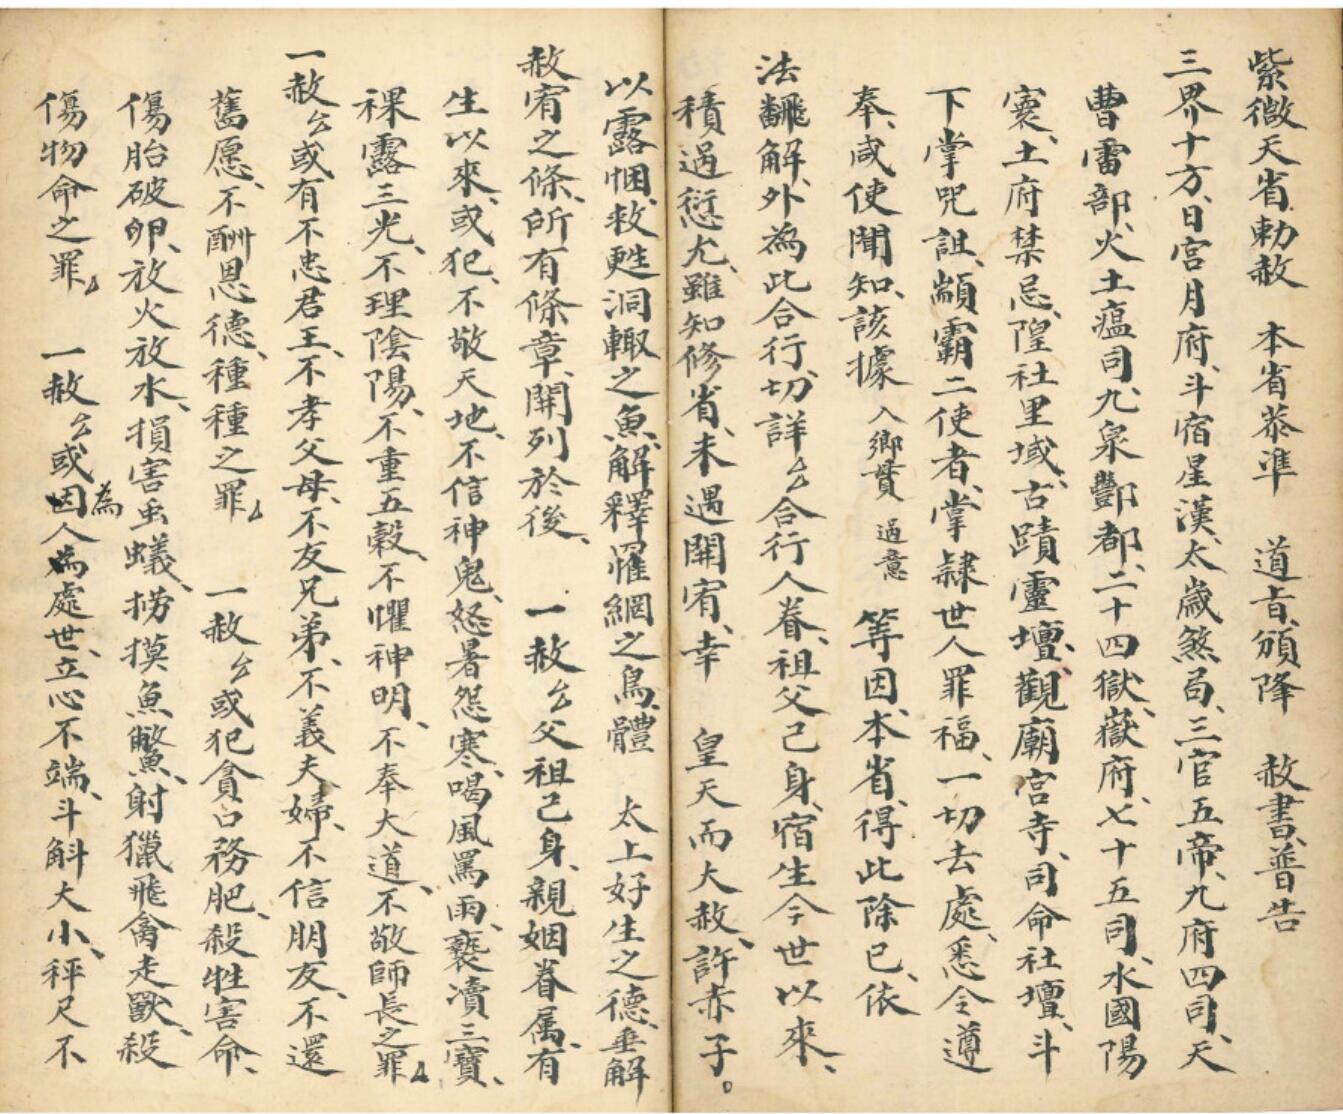 紫微天省勅赦　本省恭準　道旨、頒降　赦書、普告
三界十方、日宮月府、斗宿星漢、太歲煞局、三官五帝、九府四司、天
曹雷部、火土瘟司、九泉酆都、二十四獄、嶽府七十五司、水國陽
寰、土府禁忌、隍社里域、古蹟靈壇、觀廟宮寺、司命社壇、斗
下掌咒詛、顓霸二使者、掌隸世人罪福、一切去處、悉令遵
奉、咸使聞知、該據　入鄉貫過意　等因、本省、得此除已、依
法飜解、外為此合行、切詳厶合行人眷、祖父己身、宿生今世以來、
積過愆尤、雖知修省、未遇開宥、幸　皇天而大赦、許赤子。
以露悃、救甦涸轍之魚、解釋罹網之鳥、體　太上好生之德、垂解
赦宥之條、所有條章、開列於後、　一赦厶父祖己身、親姻眷属、有
生以來、或犯、不敬天地、不信神鬼、怒暑怨寒、喝風罵雨、褻瀆三寶、
裸露三光、不理陰陽、不重五穀、不懼神明、不奉大道、不敬師長之罪、
一赦厶或有不忠君王、不孝父母、不友兄弟、不義夫婦、不信朋友、不還
舊愿、不酬恩德、種種之罪、　一赦厶或犯貪口務肥、殺牲害命、
傷胎破卵、放火放水、損害虫蟻、撈摸魚鱉、射獵飛禽走獸、殺
傷物命之罪、　一赦厶或因為人處世、立心不端、斗斛大小、秤尺不